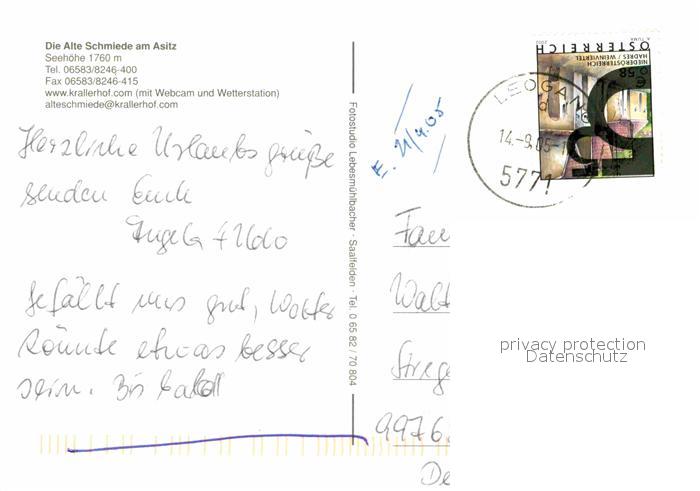 Die Alte Schmiede am Asitz
Seehöhe 1760 m
Tel. 06583/8246-400
Fax 06583/8246-415
www.krallerhof.com (mit Webcam und Wetterstation)
alteschmiede@krallerhof.com
Herzliche Urlaubsgrüße
senden Euch
Angela + Udo
Gefällt uns gut, Wetter
könnte etwas besser
sein. Bis bald
Fotostudio Lebesmühlbacher · Saalfelden · Tel. 0 65 82 / 70 804
E. 21/9.05
LEOGAN
14.-9.05-
5771
ÖSTERREICH
NIEDERÖSTERREICH
HADRES / WEINVIERTEL
A. TUMA 2002
€ 0.58
Fam
Walt
9976
privacy protection
Datenschutz